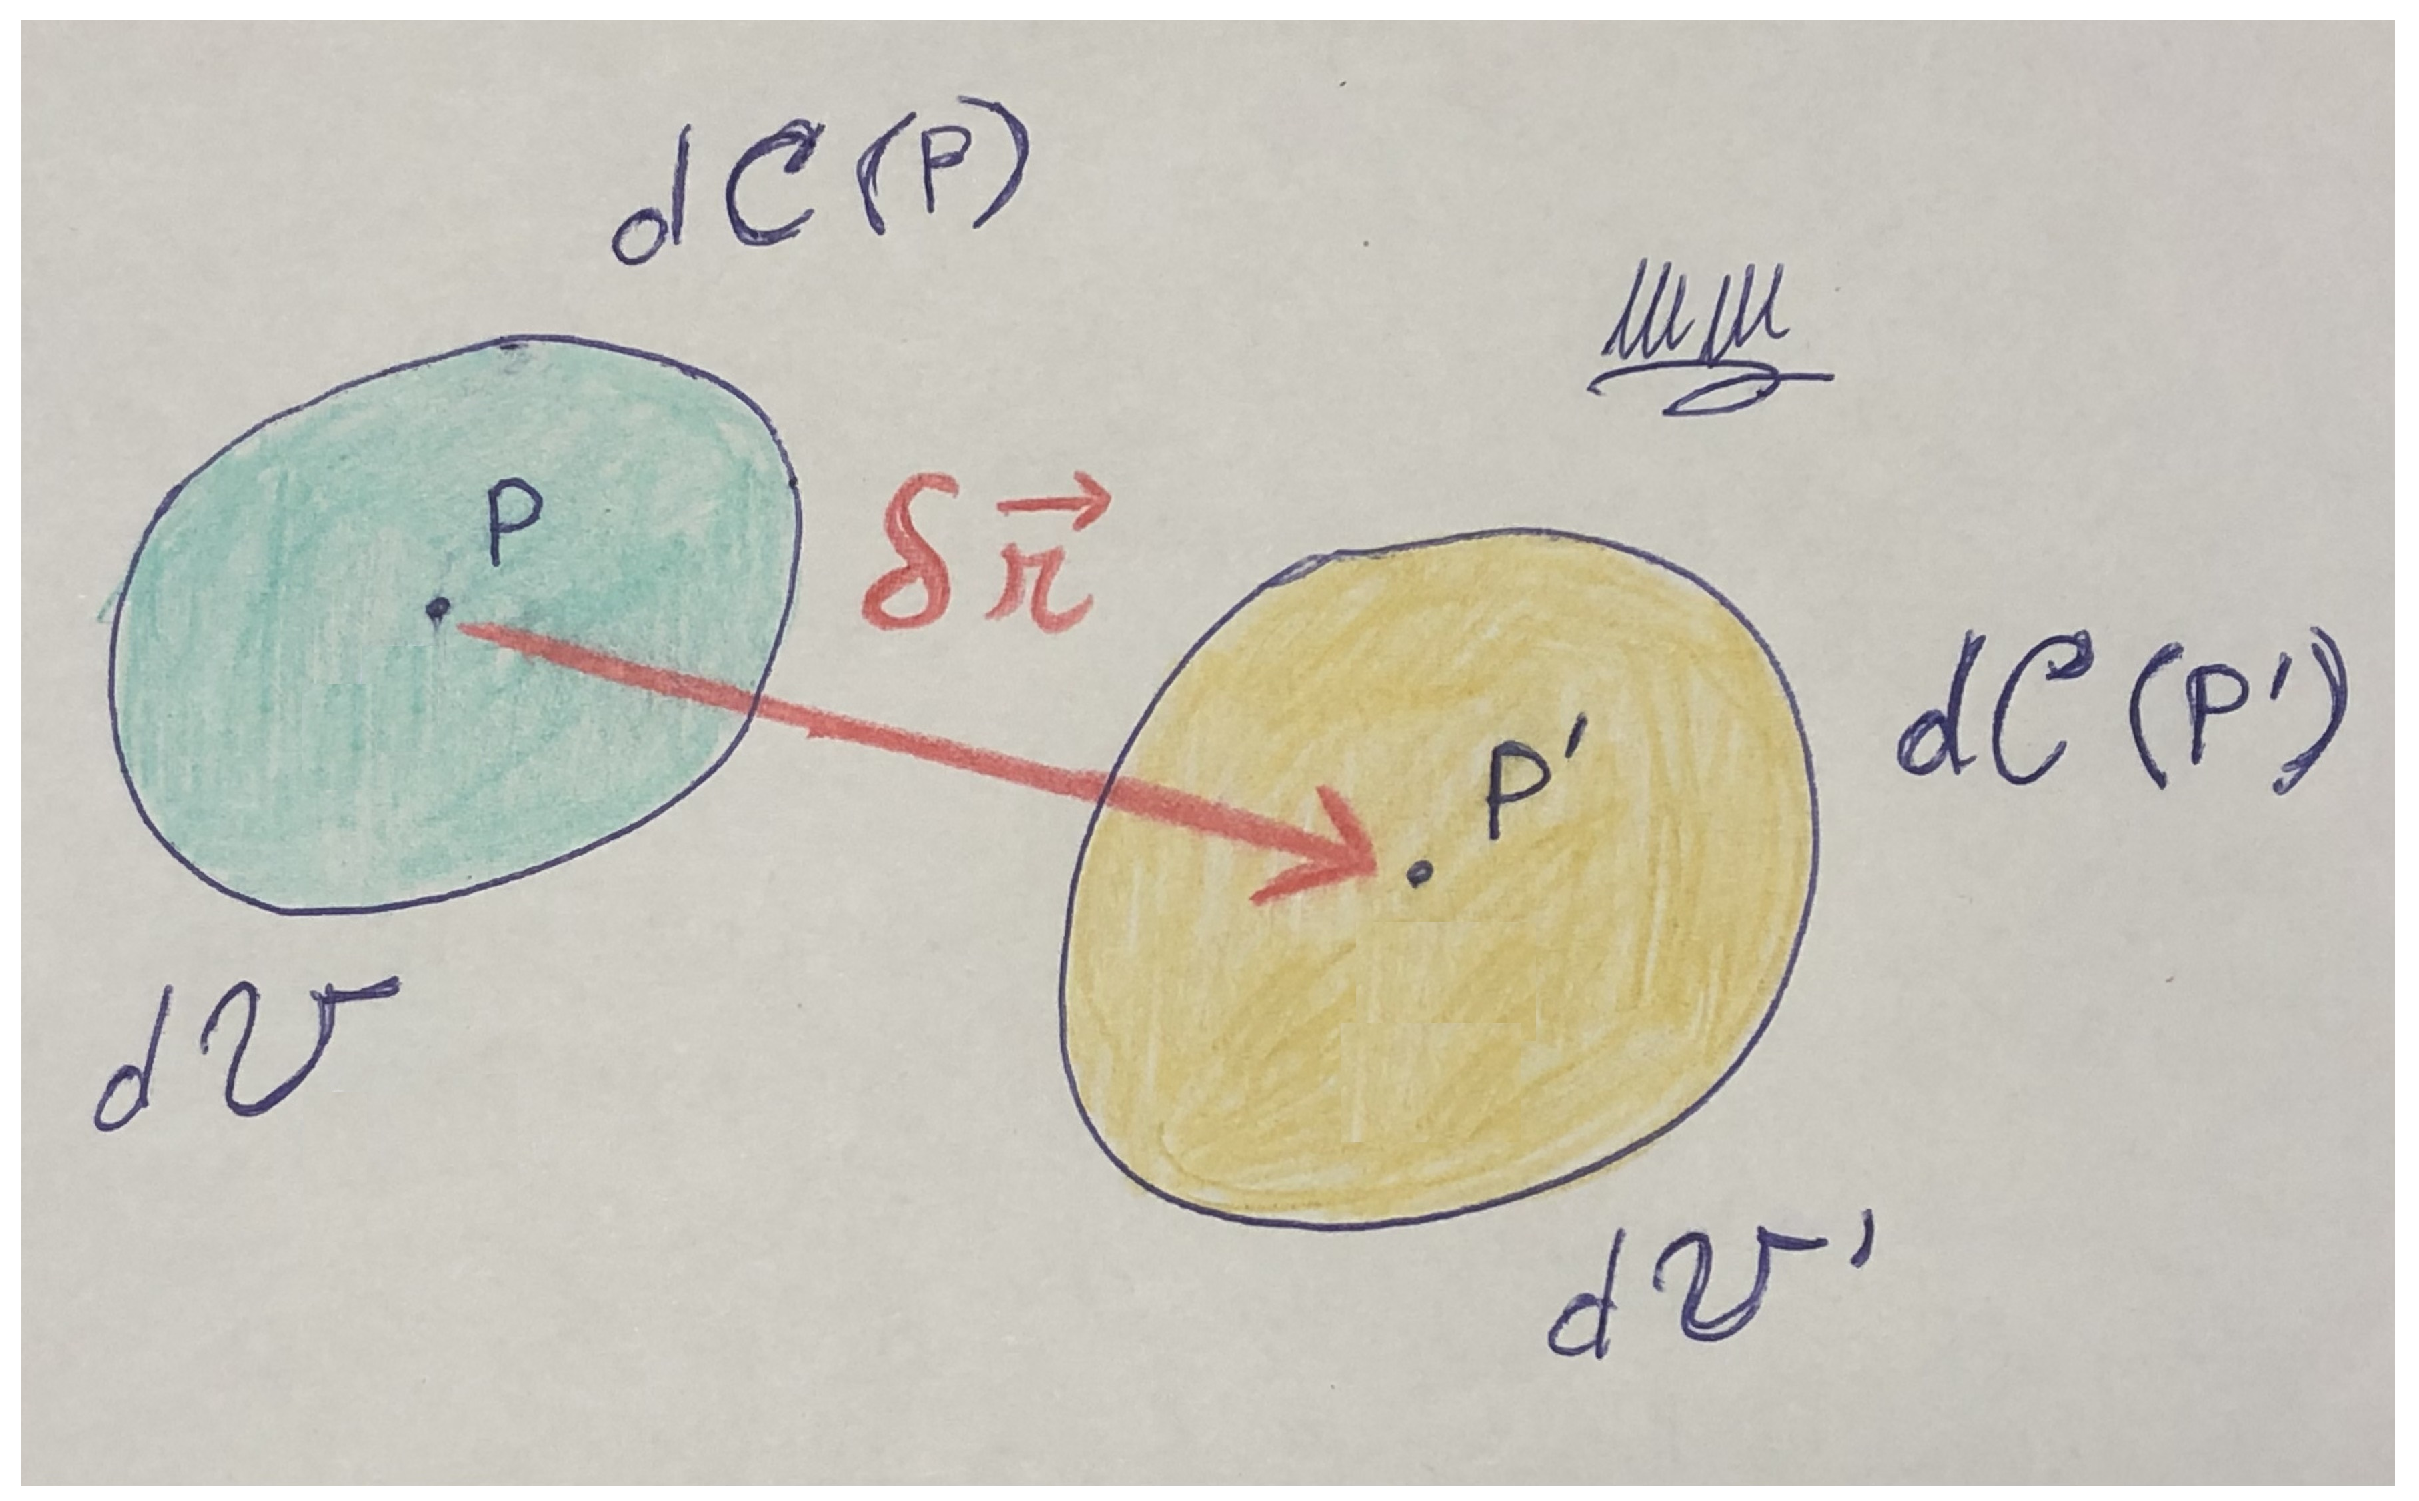 dC(P)
P
δr⃗
P'
dC(P')
d𝒱
d𝒱'